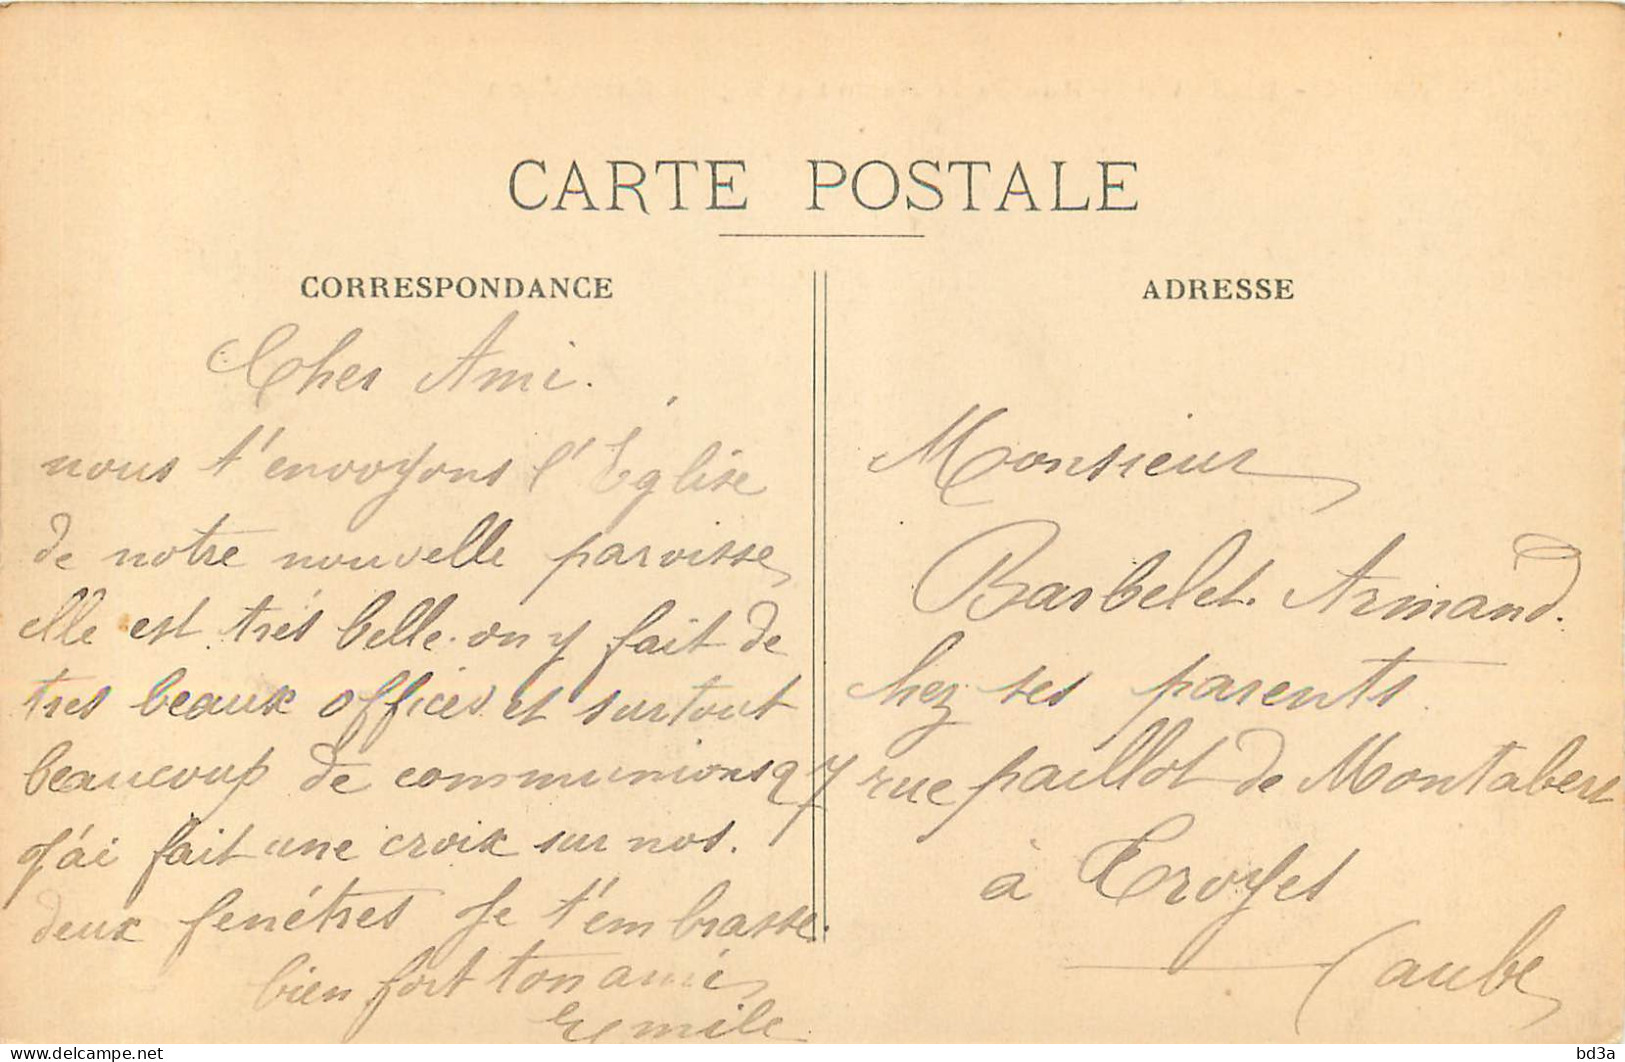 CARTE POSTALE
CORRESPONDANCE
Cher Ami.
nous t'envoyons l'Église
de notre nouvelle paroisse,
elle est très belle. on y fait de
tres beaux offices et surtout
beaucoup de communions
j'ai fait une croix sur nos.
deux fenétres Je t'embrasse.
bien fort ton ami,
Eymile
ADRESSE
Monsieur
Barbelet. Armand.
chez ses parents
27 rue paillot de Montabert
à Troyes
(aube)
delcampe.net
bd3a